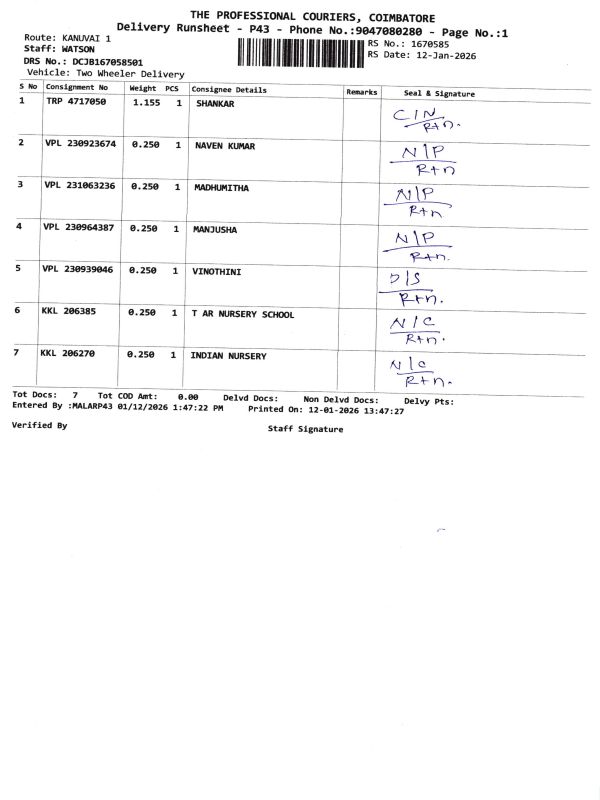 THE PROFESSIONAL COURIERS, COIMBATORE
Delivery Runsheet - P43 - Phone No.:9047080280 - Page No.:1
Route: KANUVAI 1
RS No.: 1670585
Staff: WATSON
RS Date: 12-Jan-2026
DRS No.: DCJB167058501
Vehicle: Two Wheeler Delivery
S No Consignment No Weight PCS Consignee Details Remarks Seal & Signature
1 TRP 4717050 1.155 1 SHANKAR C/N
Rtn.
2 VPL 230923674 0.250 1 NAVEN KUMAR N/P
Rtn
3 VPL 231063236 0.250 1 MADHUMITHA N/P
Rtn
4 VPL 230964387 0.250 1 MANJUSHA N/P
Rtn.
5 VPL 230939046 0.250 1 VINOTHINI D/S
Rtn.
6 KKL 206385 0.250 1 T AR NURSERY SCHOOL N/C
Rtn.
7 KKL 206270 0.250 1 INDIAN NURSERY N/C
Rtn.
Tot Docs: 7 Tot COD Amt: 0.00 Delvd Docs: Non Delvd Docs: Delvy Pts:
Entered By :MALARP43 01/12/2026 1:47:22 PM Printed On: 12-01-2026 13:47:27
Verified By Staff Signature